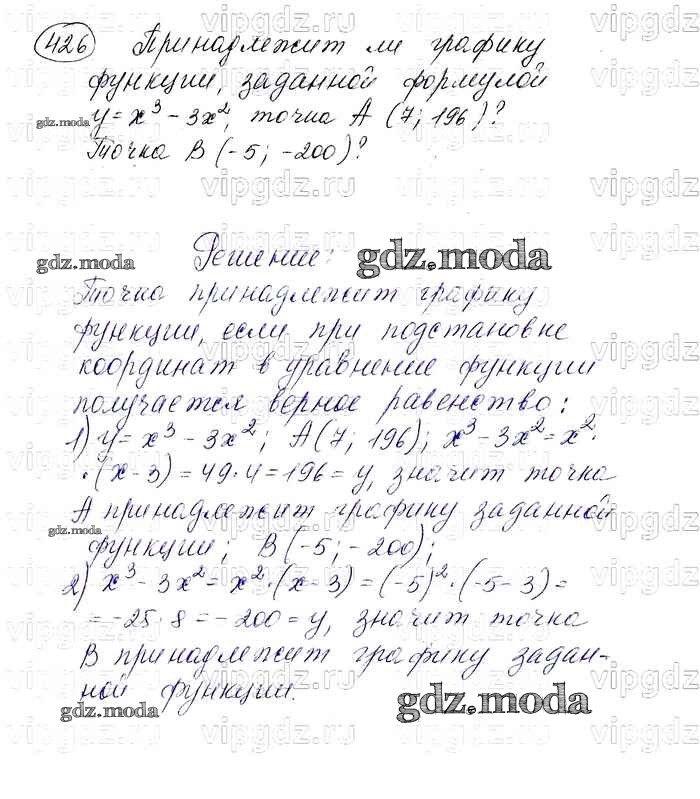 426 Принадлежит ли графику
функции, заданной формулой
gdz.moda y = x³ - 3x², точка A (7; 196)?
Точка B (-5; -200)?
gdz.moda Решение: gdz.moda
Точка принадлежит графику
функции, если при подстановке
координат в уравнение функции
получается верное равенство:
1) y = x³ - 3x²; A(7; 196); x³ - 3x² = x² ·
· (x - 3) = 49 · 4 = 196 = y, значит точка
A принадлежит графику заданной
gdz.moda
функции; B(-5; -200);
2) x³ - 3x² = x² · (x - 3) = (-5)² · (-5 - 3) =
= -25 · 8 = -200 = y, значит точка
B принадлежит графику задан-
ной функции.
gdz.moda gdz.moda
vipgdz.ru vipgdz.ru vipgdz.ru